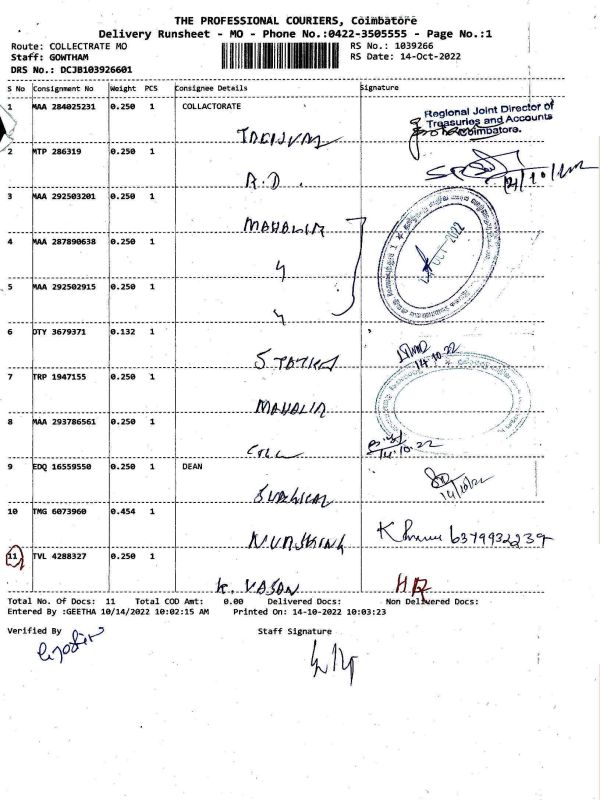 THE PROFESSIONAL COURIERS, Coimbatore
Delivery Runsheet - MO - Phone No.:0422-3505555 - Page No.:1
Route: COLLECTRATE MO
RS No.: 1039266
Staff: GOWTHAM
RS Date: 14-Oct-2022
DRS No.: DCJB103926601
S No Consignment No Weight PCS Consignee Details Signature
1 MAA 284025231 0.250 1 COLLACTORATE
Regional Joint Director of
Treasuries and Accounts
Coimbatore.
2 MTP 286319 0.250 1
R.D.
14/10/2022
3 MAA 292503201 0.250 1
MAHALIR
4 MAA 287890638 0.250 1
14 OCT 2022
5 MAA 292502915 0.250 1
6 DTY 3679371 0.132 1
14.10.22
7 TRP 1947155 0.250 1
MAHALIR
8 MAA 293786561 0.250 1
14.10.22
9 EDQ 16559550 0.250 1 DEAN
SURGICAL
14/10/22
10 TMG 6073960 0.454 1
NURSHING
11 TVL 4288327 0.250 1
K. VASAN
Total No. Of Docs: 11 Total COD Amt: 0.00 Delivered Docs: Non Delivered Docs:
Entered By :GEETHA 10/14/2022 10:02:15 AM Printed On: 14-10-2022 10:03:23
Verified By Staff Signature